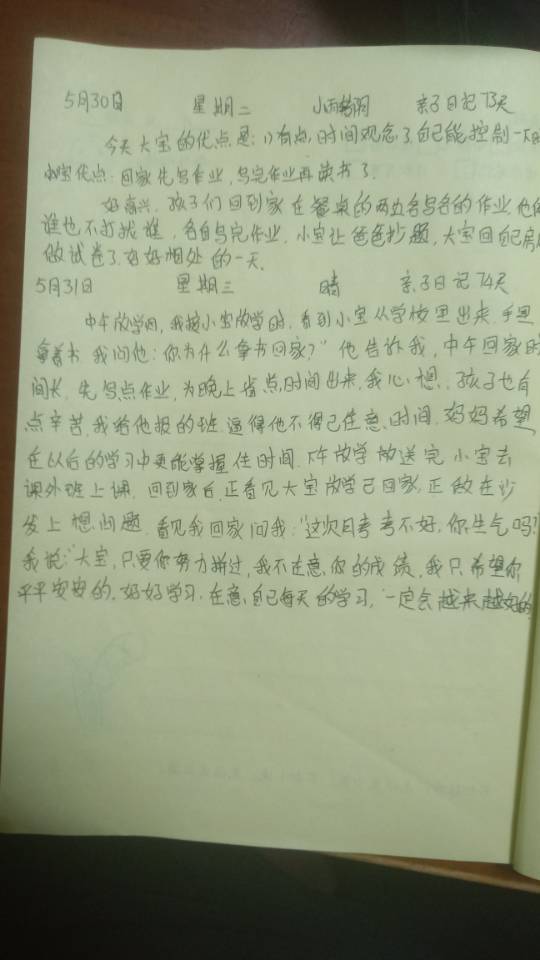 5月30日 星期二 小雨转阴 亲子日记73天
今天大宝的优点是:1)有点时间观念了.自己能控制一
小宝优点:回家先写作业,写完作业再读书了.
好高兴.孩子们回到家在餐桌的两边各写各的作业.他们
谁也不打扰谁.各自写完作业.小宝让爸爸抄题.大宝回自己房
做试卷了.好好相处的一天.
5月31日 星期三 晴 亲子日记74天
中午放学时,我接小宝放学时.看到小宝从学校里出来.手里
拿着书.我问他:你为什么拿书回家?”他告诉我,中午回家时
间长.先写点作业,为晚上省点时间出来.我心想.孩子也有
点辛苦.我给他报的班逼得他不得已在意时间.妈妈希望
在以后的学习中更能掌握住时间.下午放学放送完小宝去
课外班上课.回到家后.正看见大宝放学已回家.正在沙
发上想问题.看见我回家问我:“这次月考考不好,你生气吗?
我说:“大宝,只要你努力拼过,我不在意你的成绩,我只希望你
平平安安的.好好学习.在意自己每天的学习,一定会越来越好的